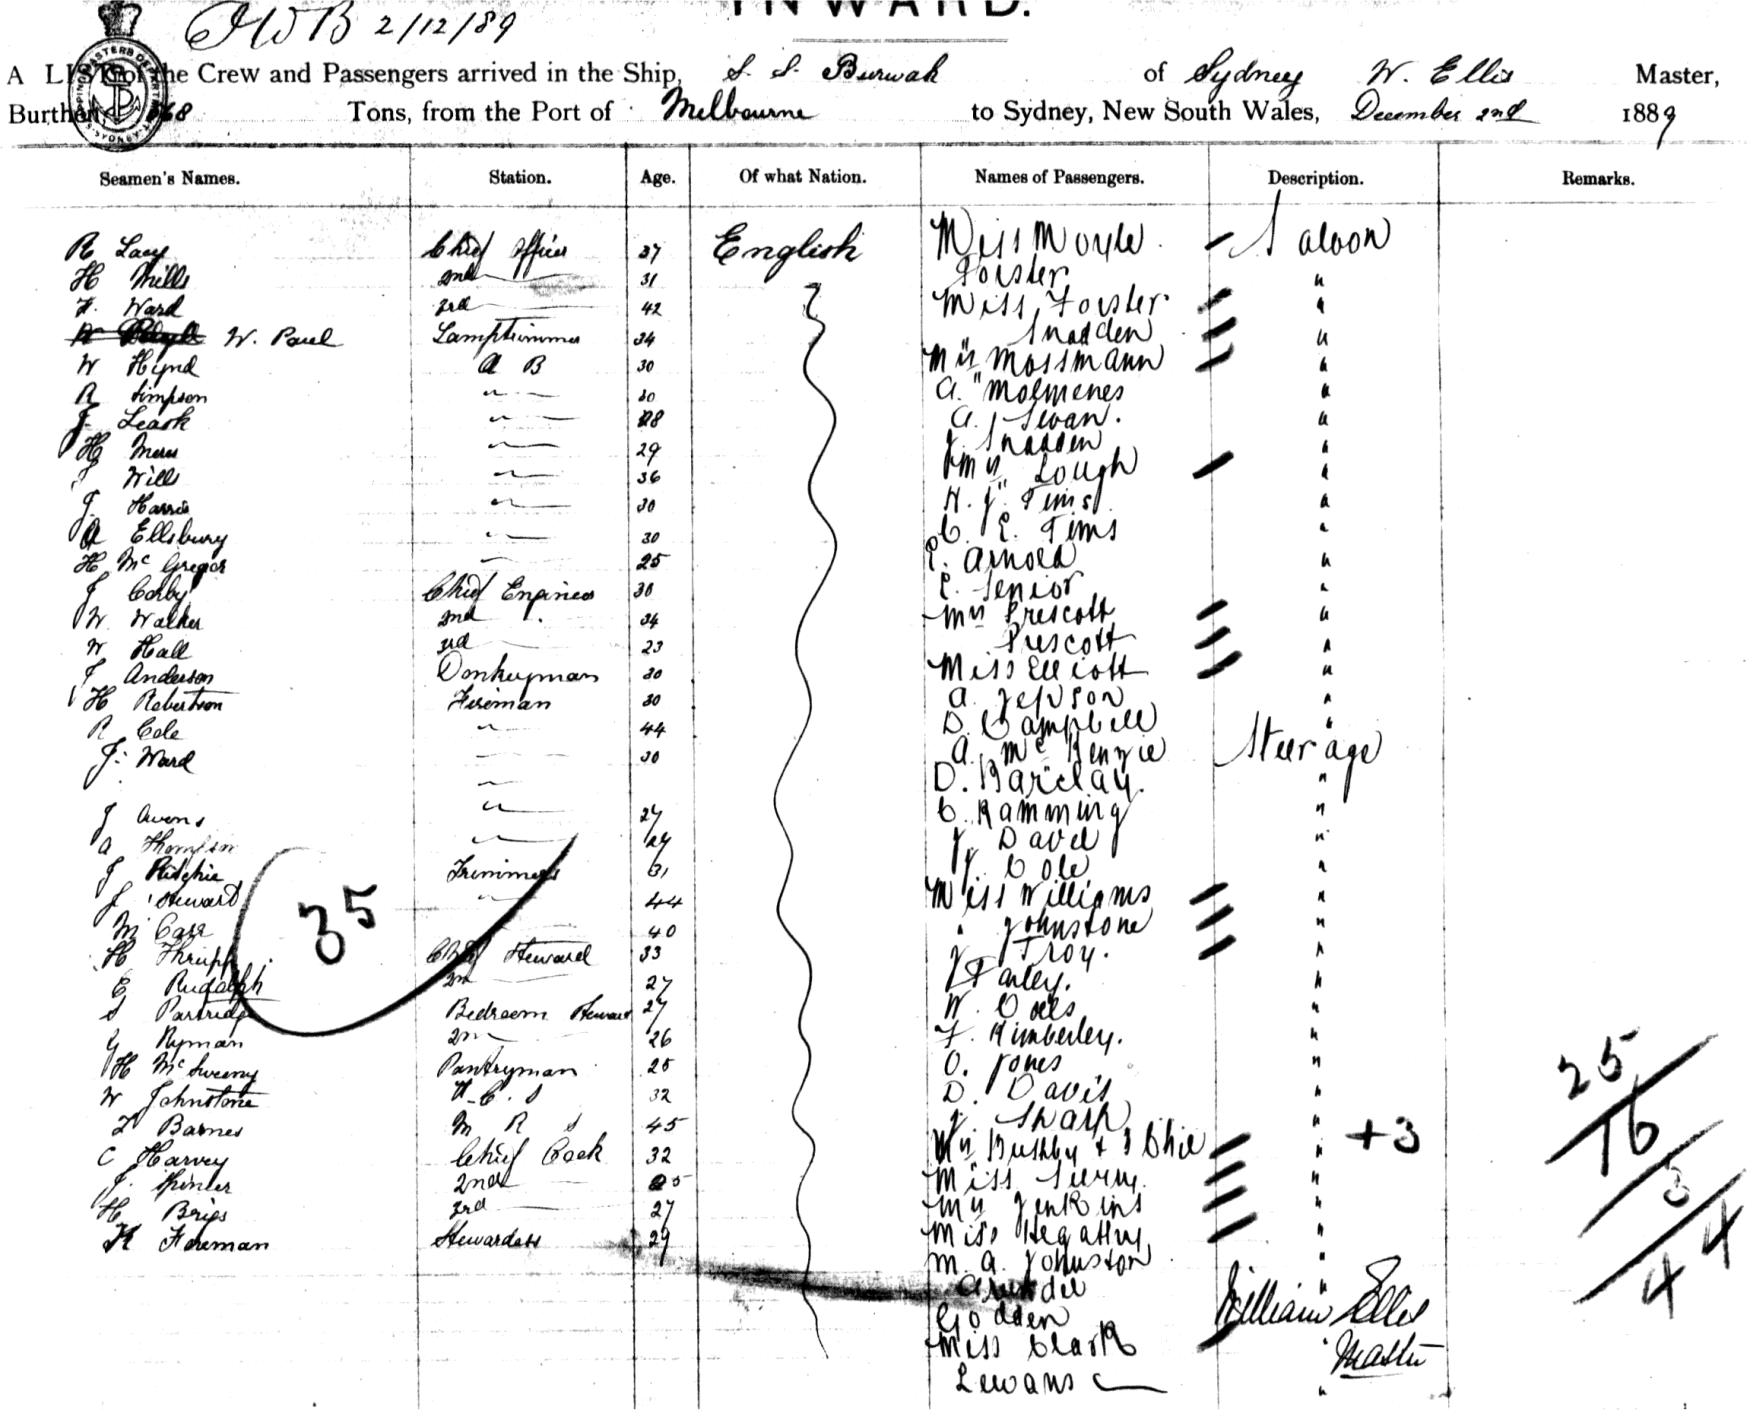 INWARD.
JWB 2/12/89
A LIST of the Crew and Passengers arrived in the Ship, S. S. Burwah of Sydney W. Ellis Master,
Burthen 568 Tons, from the Port of Melbourne to Sydney, New South Wales, December 2nd 1889
Seamen's Names. Station. Age. Of what Nation. Names of Passengers. Description. Remarks.
R Lacy Chief Officer 37 English Miss Moyle Saloon
H Mills 2nd 31 Forster "
F. Ward 3rd 42 Miss Forster "
W. Paul Lamptrimmer 34 " Snadden "
W Hynd A B 30 Mrs Mossmann "
R Simpson " 30 A. Molmenes "
J. Leask " 28 A. J Swan. "
H " 29 J. Snadden "
J Will " 36 Mrs Lough "
J. Harris " 30 H. J. Tims "
A Ellsbury " 30 C. E. Tims "
H McGregor " 25 E. Arnold "
J Corby Chief Engineer 30 E. Senior "
W. Walker 2nd 34 Mrs Prescott "
W Hall 3rd 23 Prescott "
J Anderson Donkeyman 30 Miss Elliott "
H Robertson Fireman 30 A. Jepson "
R Cole " 44 D. Campbell "
J. Ward " 30 A. McKenzie Steerage
" D. Barclay. "
J Owens " 27 C. Ramming "
A Thomson " 24 J. Davel "
J Ritchie Trimmers 31 J. Cole "
J Steward " 44 Miss Williams "
M Carr 40 " Johnstone "
H Thrupp Chief Steward 33 J Troy. "
E Rudolph 2nd 27 J Farley. "
S Partridge Bedroom Steward 27 W. Oates "
G Ryman 2nd 26 F. Kimberley. "
H McSweeny Pantryman 25 O. Jones "
W Johnstone F. C. S 32 D. Davis "
T Barnes M R S 45 J. Sharp "
C Harvey Chief Cook 32 Mrs Bushby + 3 Chil " +3
J. Spinter 2nd 25 Miss "
H Brigs 3rd 27 Mrs Jenkins "
K Foreman Stewardess 29 Miss Hegathy "
M. A. Johnston "
Arundel "
Godden
Miss Clark "
Lewans "
35
25
16
3
44
William Ellis
Master